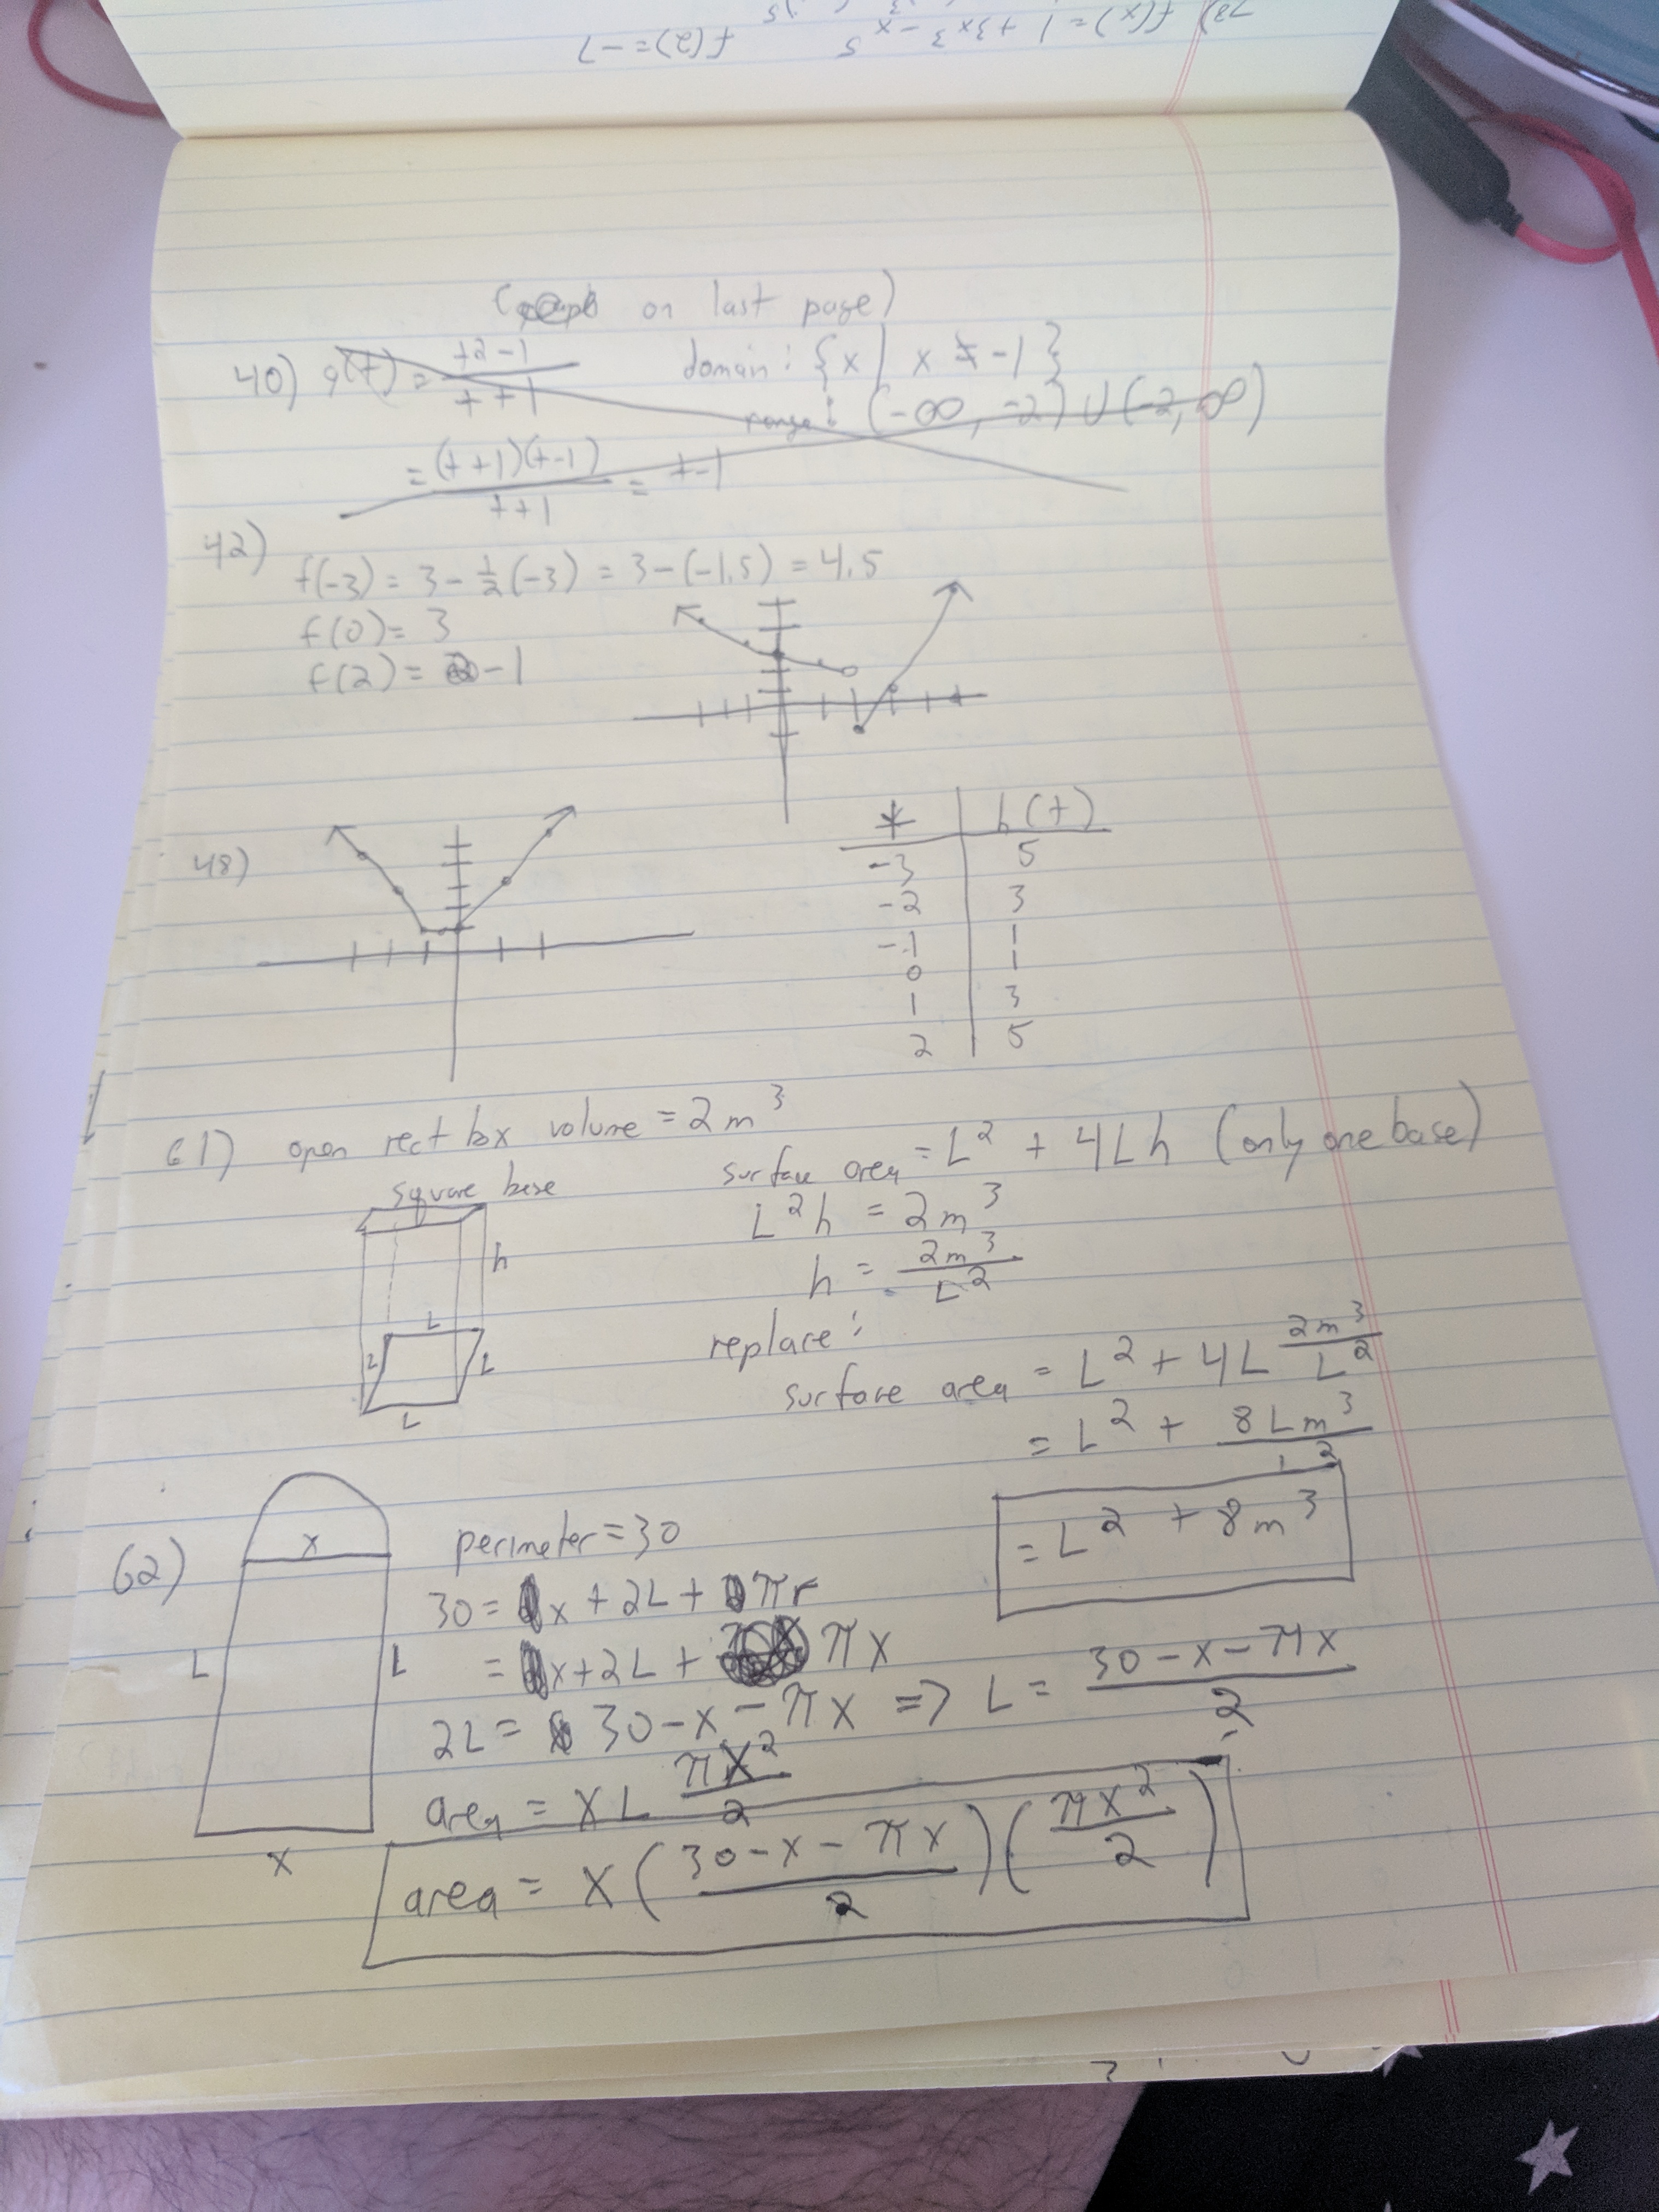 73) f(x) = 1 + 3x³ - x⁵ f(2) = -7
( on last page)
40) g(t) = t2-1 / t+1 domain: {x | x ≠ -1}
range: (-∞, -2) ∪ (-2, ∞)
= (t+1)(t-1) / t+1 = t-1
42)
f(-3) = 3 - 1/2 (-3) = 3 - (-1.5) = 4.5
f(0) = 3
f(2) = -1
48)
t | h(t)
-3 | 5
-2 | 3
-1 | 1
0 | 1
1 | 3
2 | 5
61) open rect box volume = 2m³
square base
h
L
L L
L
surface area = L² + 4Lh (only one base)
L²h = 2m³
h = 2m³ / L²
replace:
surface area = L² + 4L 2m³ / L²
= L² + 8Lm³ / L²
= L² + 8m³
62) x
L L
x
perimeter = 30
30 = x + 2L + πr
= x + 2L + πx
2L = 30 - x - πx => L = 30 - x - πx / 2
area = xL πx² / 2
area = x (30 - x - πx / 2) (πx² / 2)